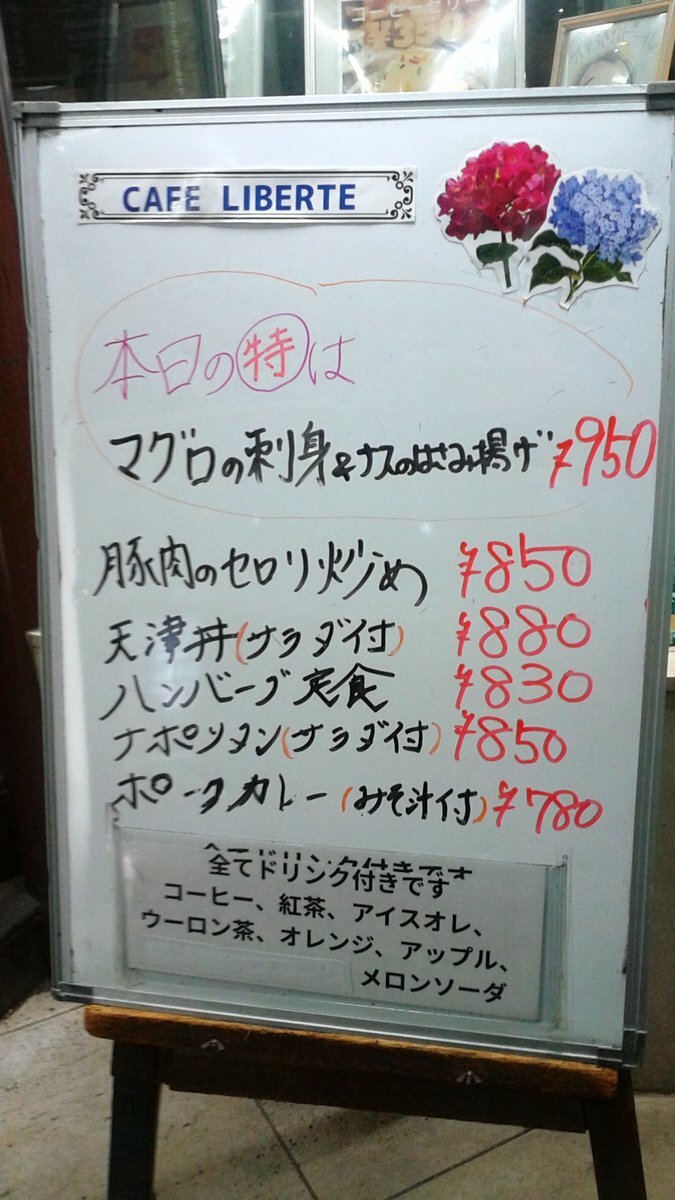 コーヒーゼリー
¥350
CAFE LIBERTE
本日の特は
マグロの刺身&ナスのはさみ揚げ ¥950
豚肉のセロリ炒め ¥850
天津丼(サラダ付) ¥880
ハンバーグ定食 ¥830
ナポリタン(サラダ付) ¥850
ポークカレー(みそ汁付) ¥780
全てドリンク付きです
全てドリンク付きです
コーヒー、紅茶、アイスオレ、
ウーロン茶、オレンジ、アップル、
メロンソーダ